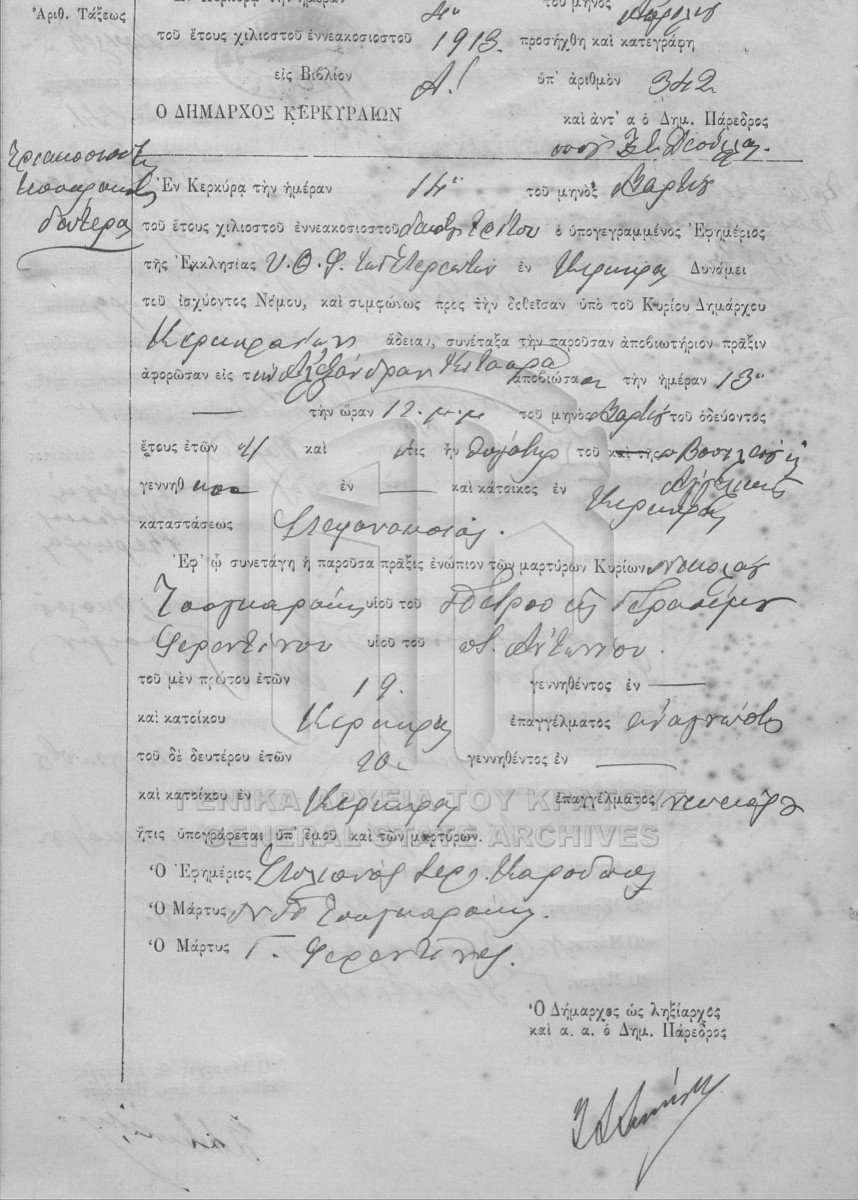 Ἀριθ. Τάξεως
Ἐν Κερκύρᾳ τὴν ἡμέραν 4η τοῦ μηνὸς Ἀπριλίου
τοῦ ἔτους χιλιοστοῦ ἐννεακοσιοστοῦ 1913. προσήχθη καὶ κατεγράφη
εἰς Βιβλίον Α! ὑπ' ἀριθμὸν 342
Ο ΔΗΜΑΡΧΟΣ ΚΕΡΚΥΡΑΙΩΝ καὶ ἀντ' α ὁ Δημ. Πάρεδρος
Τριακοσιοστὴ
τεσσαρακοστὴ
δευτέρα
Ἐν Κερκύρᾳ τὴν ἡμέραν 14η τοῦ μηνὸς Μαρτίου
τοῦ ἔτους χιλιοστοῦ ἐννεακοσιοστοῦ δεκάτου τρίτου ὁ ὑπογεγραμμένος Ἐφημέριος
τῆς Ἐκκλησίας Υ. Θ. Φ. τῶν ἐν Κερκύρᾳ Δυνάμει
τοῦ ἰσχύοντος Νόμου, καὶ συμφώνως προς τὴν δοθεῖσαν ὑπὸ τοῦ Κυρίου Δημάρχου
Κερκυραίων ἄδειαν, συνέταξα τὴν παροῦσαν ἀποβιωτήριον πρᾶξιν
ἀφορῶσαν εἰς τὴν Ἀλεξάνδραν ἀποβιώσασαν τὴν ἡμέραν 13η
τὴν ὥραν 12. μ.μ. τοῦ μηνὸς Μαρτίου τοῦ ὁδεύοντος
ἔτους ἐτῶν καὶ ἥτις ἦν θυγάτηρ τοῦ καὶ τῆς Βασιλείου κ
Ἀγγελικῆς
γεννηθεῖσα ἐν — καὶ κάτοικος ἐν Κερκύρᾳ
καταστάσεως
Ἐφ' ᾧ συνετάγη ἡ παροῦσα πρᾶξις ἐνώπιον τῶν μαρτύρων Κυρίων Νικολάου
Τσαγκαράκη υἱοῦ τοῦ Πέτρου κ Γερασίμου
Φεραντίνου υἱοῦ τοῦ π. Ἀντωνίου.
τοῦ μὲν πρώτου ἐτῶν 19. γεννηθέντος ἐν —
καὶ κατοίκου Κερκύρᾳ ἐπαγγέλματος ἀναγνώστου
τοῦ δὲ δευτέρου ἐτῶν 20. γεννηθέντος ἐν —
καὶ κατοίκου ἐν Κερκύρᾳ ἐπαγγέλματος
ΓΕΝΙΚΑ ΑΡΧΕΙΑ ΤΟΥ ΚΡΑΤΟΥΣ
ἥτις ὑπογράφεται ὑπ' ἐμοῦ καὶ τῶν μαρτύρων.
GENERAL STATE ARCHIVES
Ὁ Ἐφημέριος Στυλιανὸς
Ὁ Μάρτυς Ν Π Τσαγκαράκης.
Ὁ Μάρτυς Γ. Φεραντίνος.
Ὁ Δήμαρχος ὡς ληξίαρχος
καὶ α. α. ὁ Δημ. Πάρεδρος